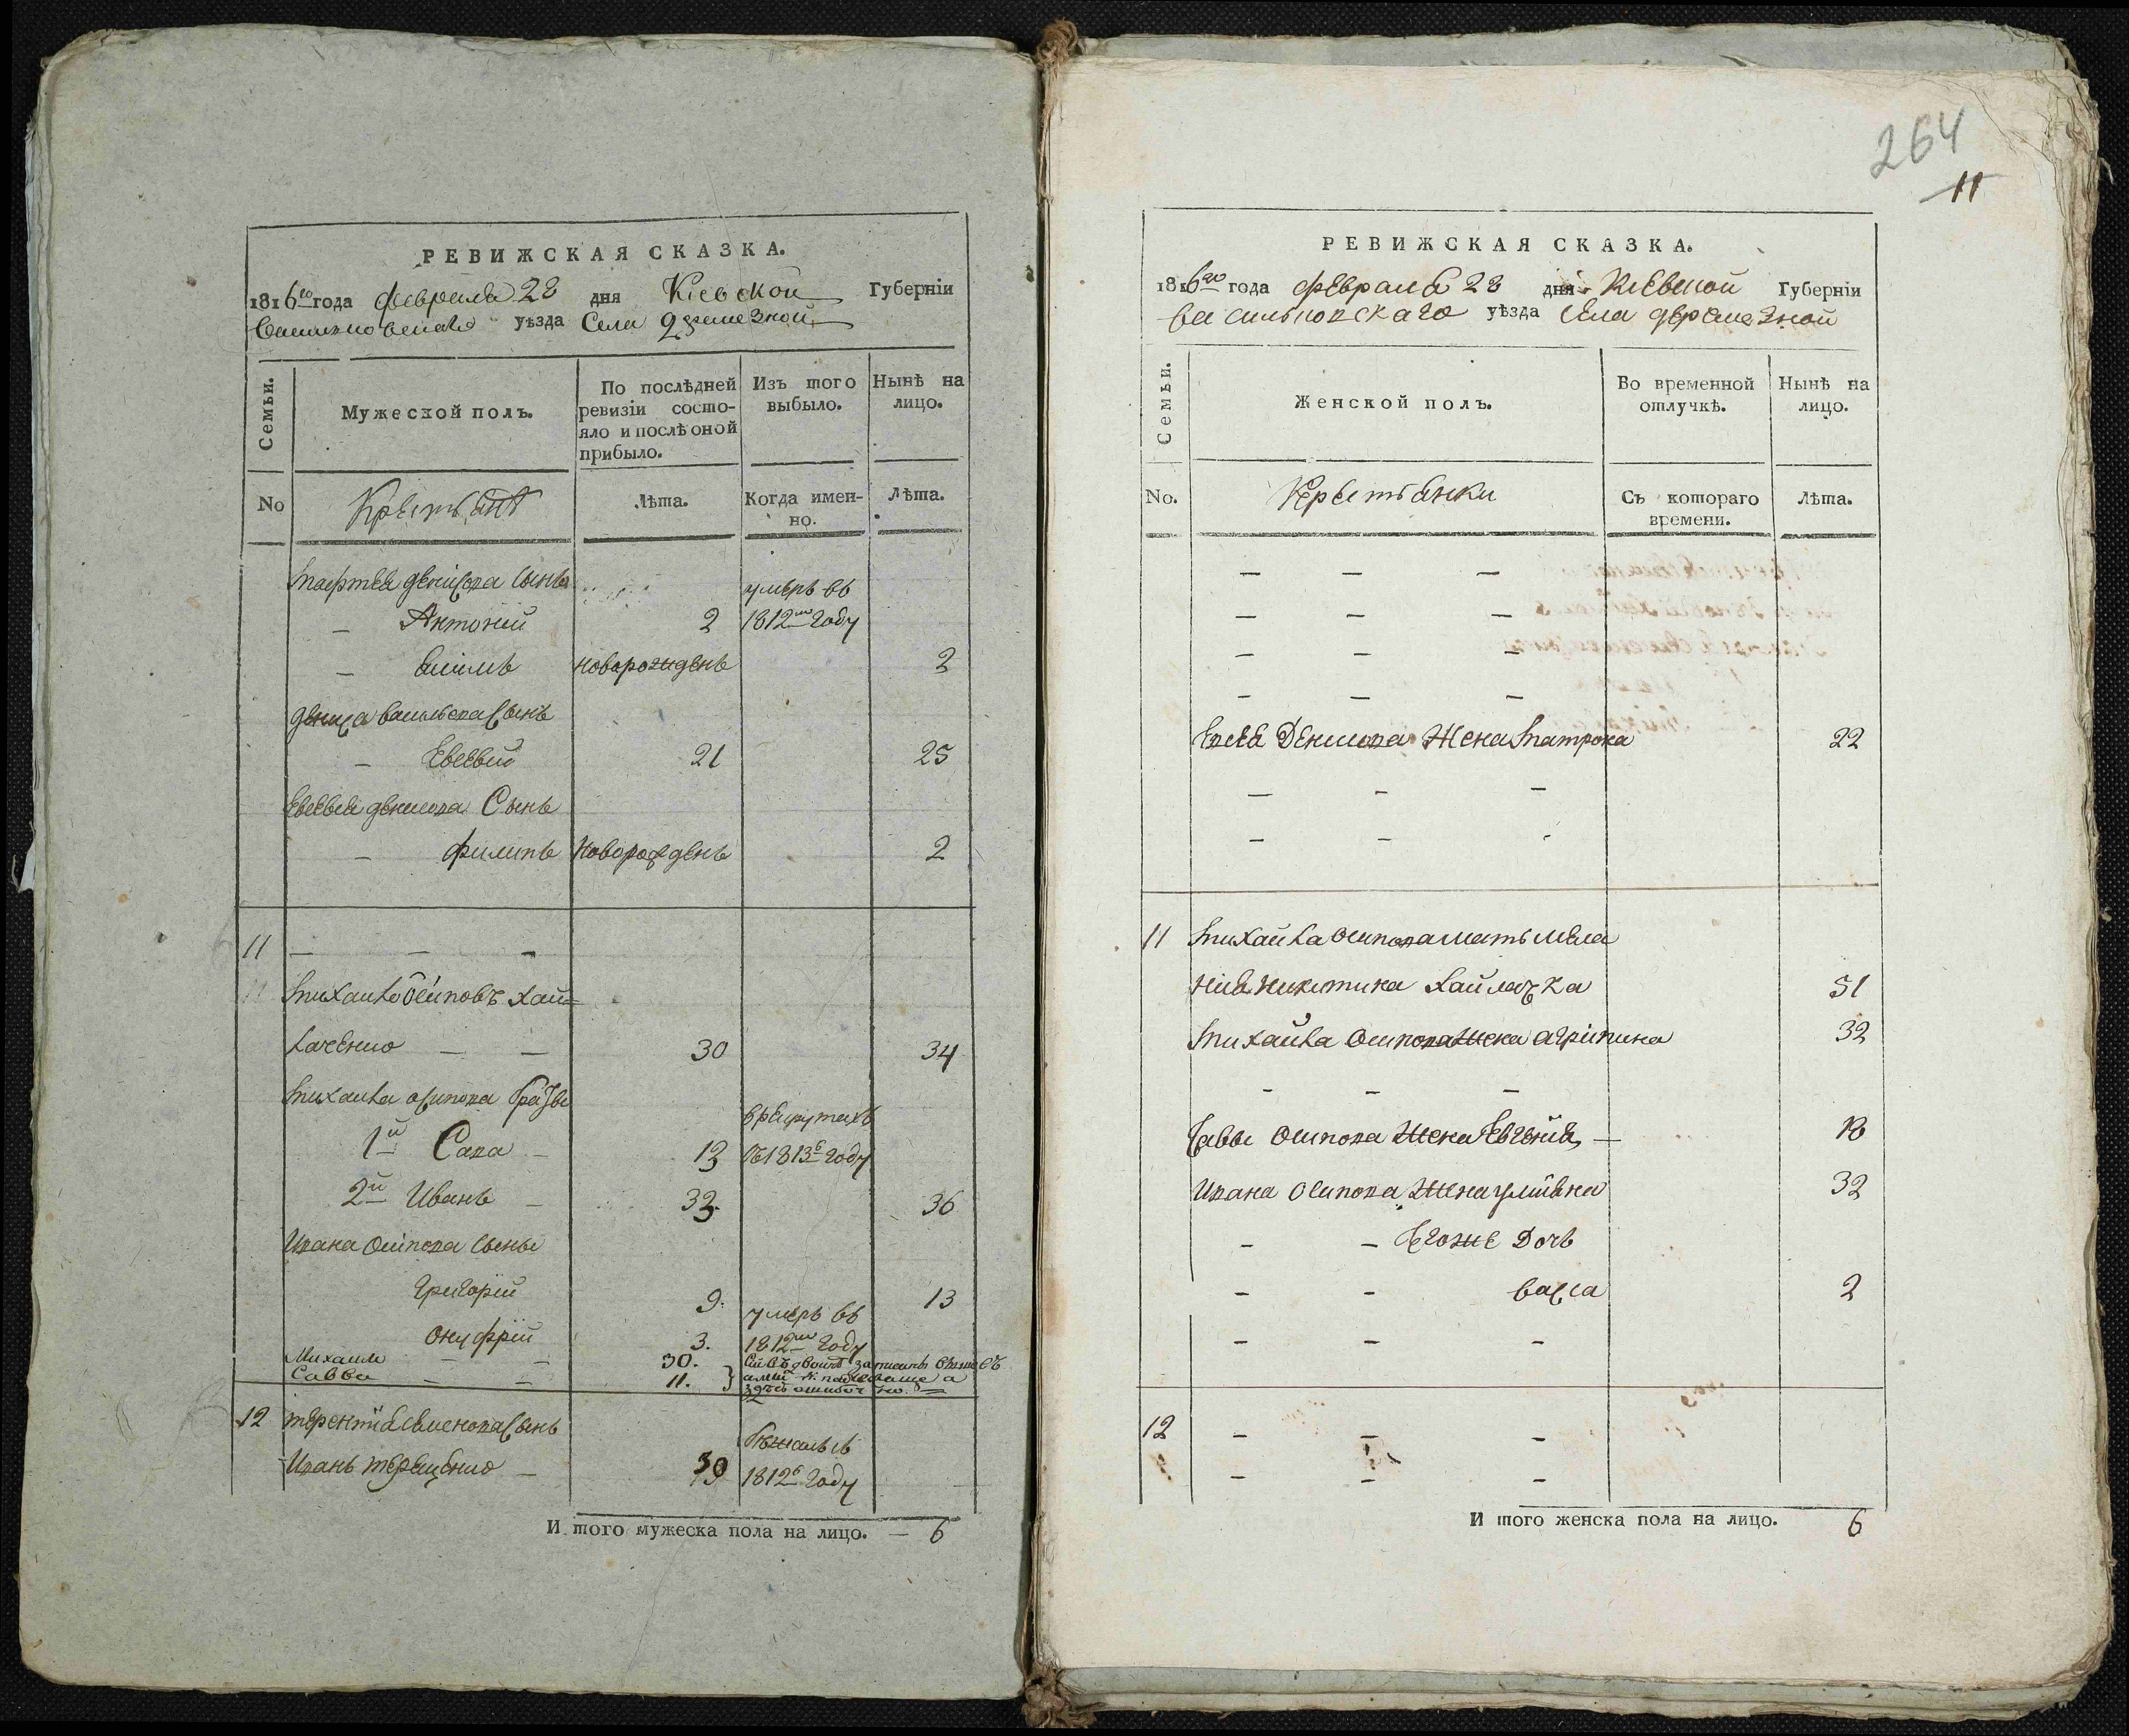 РЕВИЖСКАЯ СКАЗКА.
1816го года февраля 28 дня Кіевской Губерніи
Васильковскаго уѣзда Села
Семьи.
Мужеской полъ.
По послѣдней ревизіи состо-
яло и послѣ оной
прибыло.
Изъ того
выбыло.
Нынѣ на
лицо.
No
Крестьянѣ
Лѣта.
Когда имен-
но.
Лѣта.
Марфтея денисова сынъ
умеръ въ
— Антоній 2 1812м году
— новорожденъ 2
дениса васильева сынъ
— Евсевий 21 25
Евсевия денисова Сынъ
— филипъ новорожденъ 2
11 — — —
11 Михайло Осиповъ хай=
лаченко — — 30 34
Михайла осипова братья
в рекрутахъ
1й Сава — 13 въ 1813е году
2й Иванъ — 32 36
Ивана Осипова сыны
григорій 9. 13
умеръ въ
онуфрій 3. 1812м году
Михаило — — 30.
Савва — — 11.
12 терентія Семенова сынъ
бежалъ въ
Иванъ терещенко — 30 1812е году
И того мужеска пола на лицо. — 6
264
11
РЕВИЖСКАЯ СКАЗКА.
1816го года февраля 28 дня Киевской Губерніи
васильковскаго уѣзда Села
Семьи.
Женской полъ.
Во временной
отлучкѣ.
Нынѣ на
лицо.
No.
Крестьянки
Съ котораго
времени.
Лѣта.
— — —
— — —
— — —
— — —
Евсея Денисова Жена Матрона 22
— - —
— — -
11 Михайла Осипова мать мела
нія никитина хайлачка 51
Михайла Осипова жена агріпина 32
- - —
Саввы Осипова Жена Евгенія — 18
Ивана Осипова Жена улияна 32
— — Егоже Дочь
— - васса 2
— — —
12 — — —
— — —
И того женска пола на лицо. 6